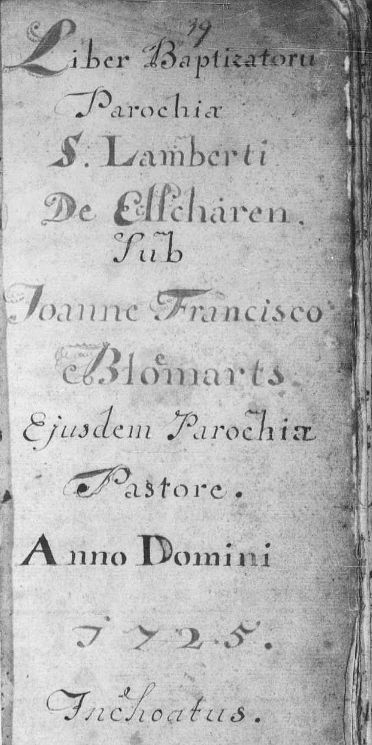 39
Liber Baptizatorū
Parochiæ
S. Lamberti
De Esschären.
Sub
Joanne Francisco
Blömarts
Ejusdem Parochiæ
Pastore.
Anno Domini
1725.
Inchoatus.